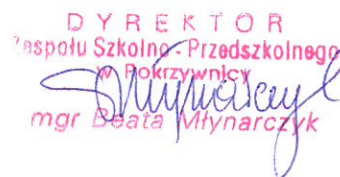 DYREKTOR
Zespołu Szkolno-Przedszkolnego
w Pokrzywnicy
mgr Beata Młynarczyk